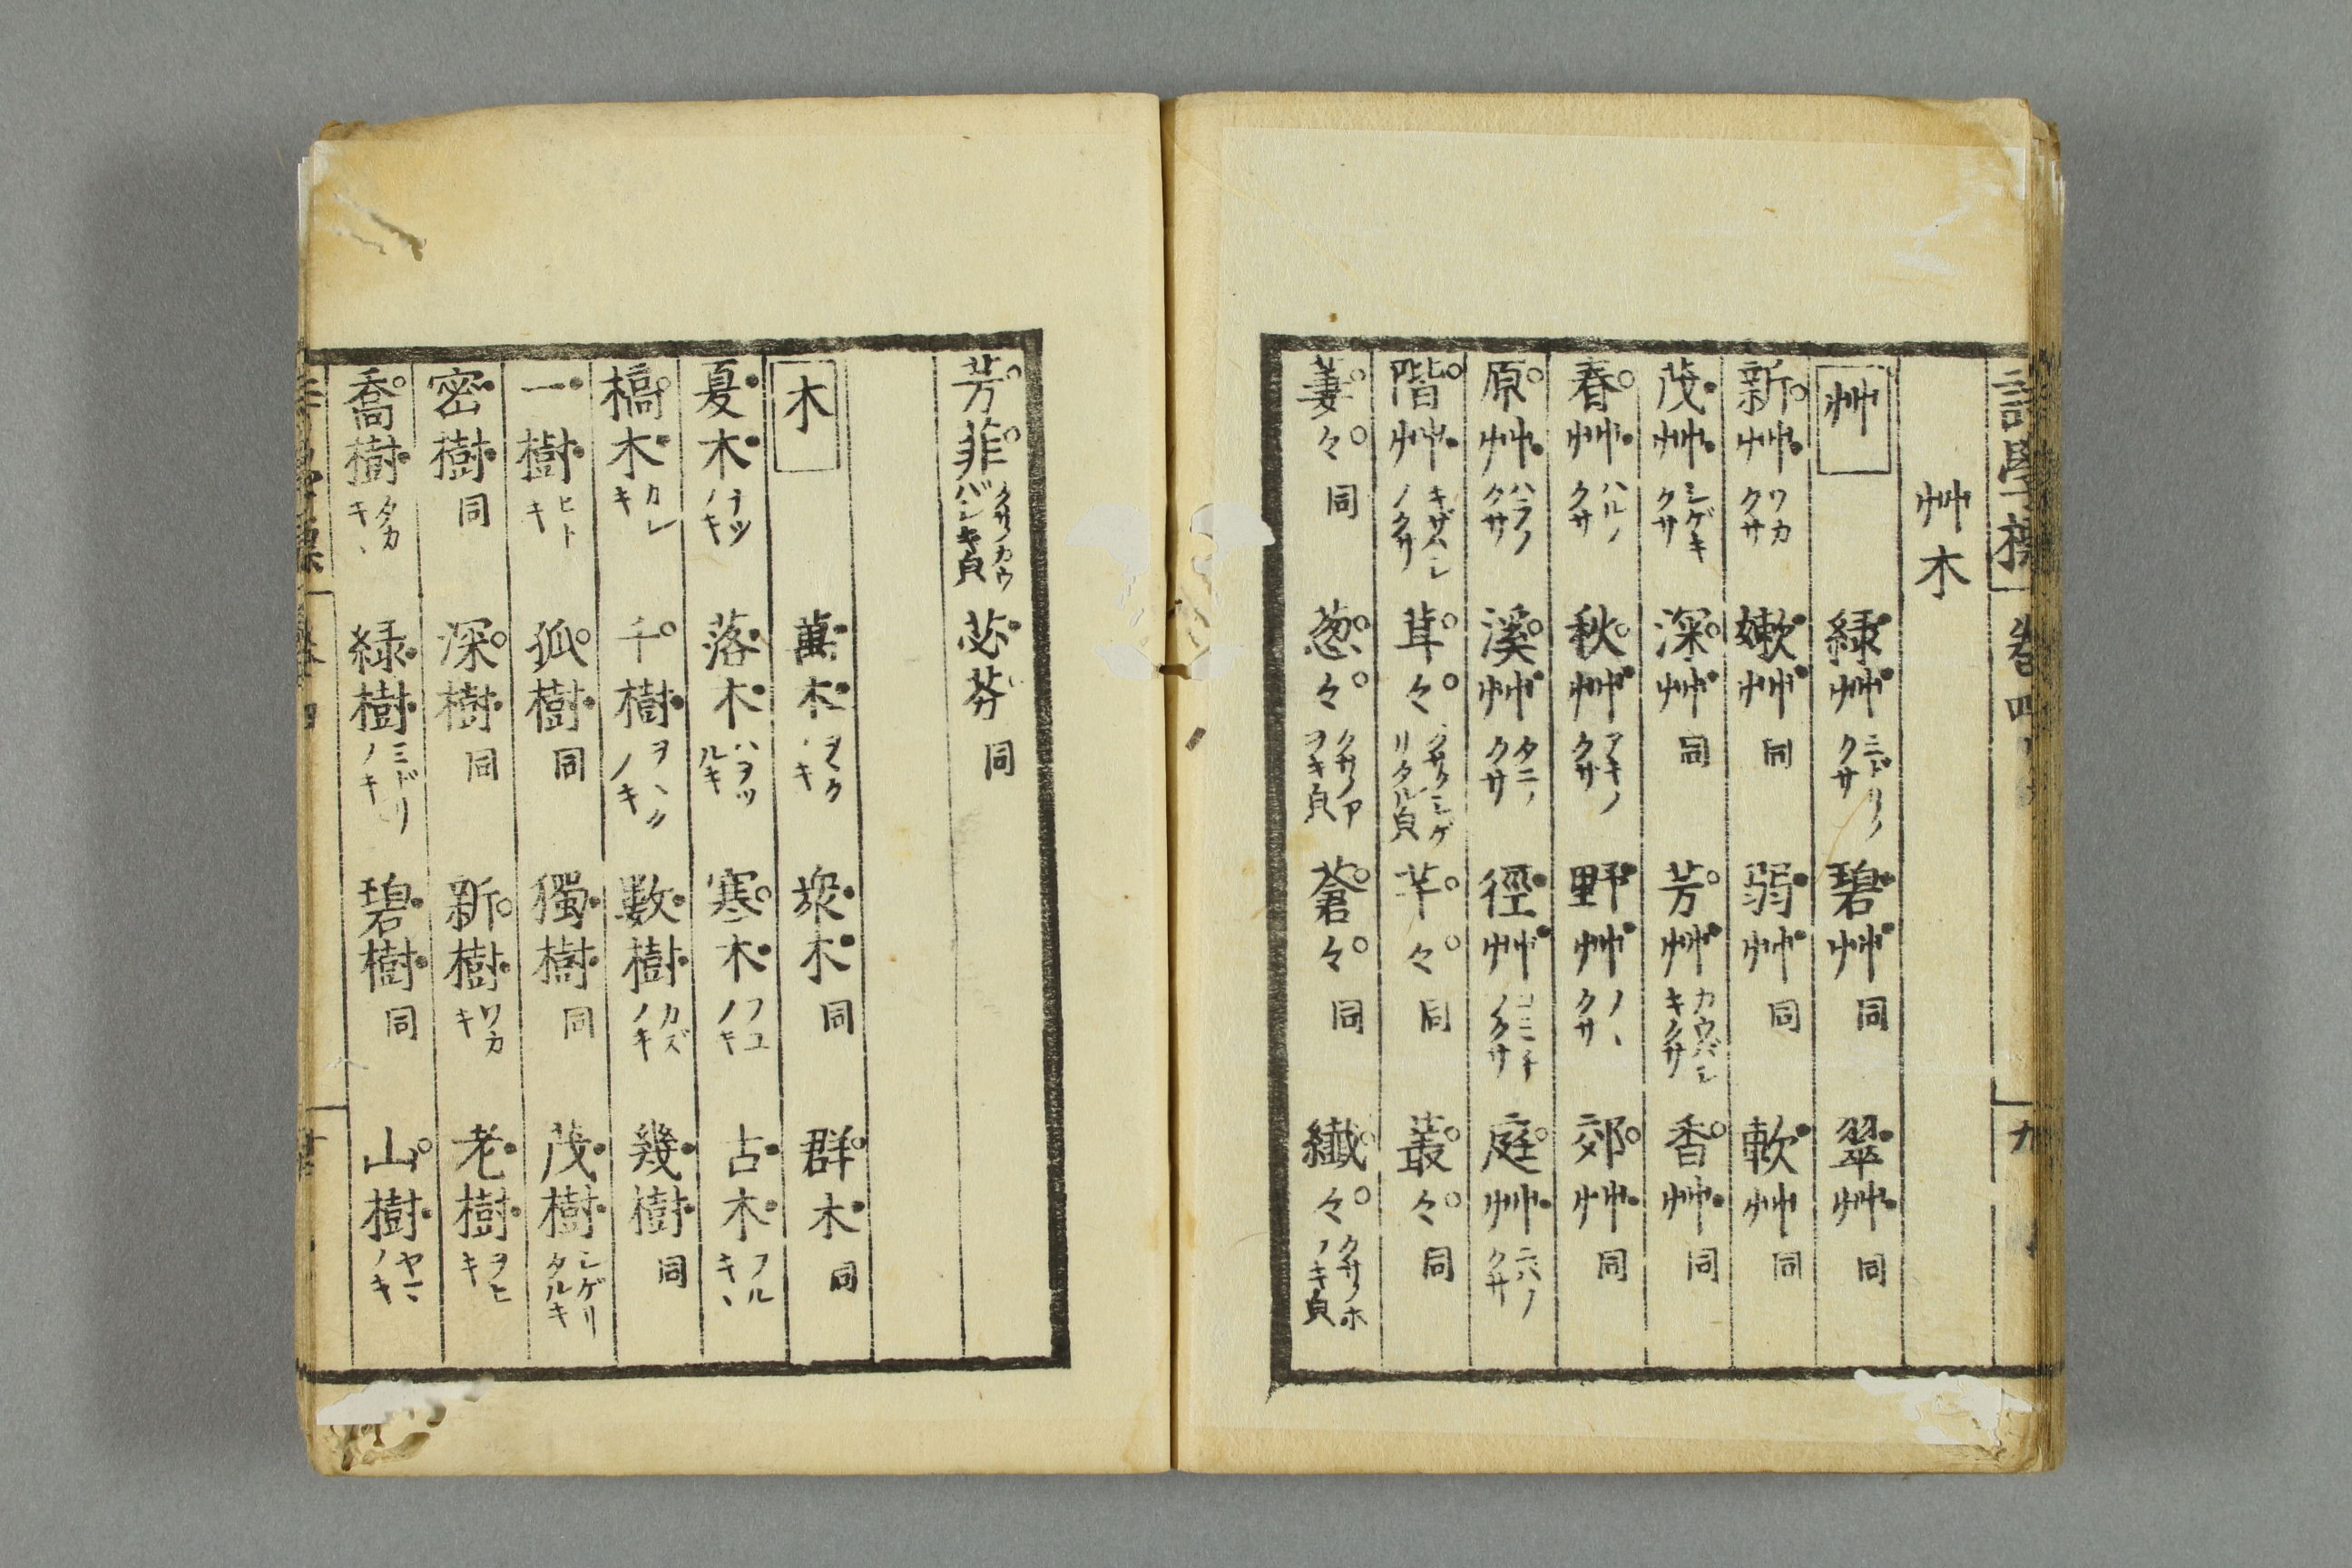 詩學 卷四 九
艸木
艸 綠艸 ミドリノクサ 碧艸 同 翠艸 同
新艸 ワカクサ 嫩艸 同 弱艸 同 軟艸 同
茂艸 シゲキクサ 深艸 同 芳艸 カウバシキクサ 香艸 同
春艸 ハルノクサ 秋艸 アキノクサ 野艸 ノヽクサ 郊艸 同
原艸 ハラノクサ 溪艸 タニノクサ 徑艸 コミチノクサ 庭艸 ニハノクサ
階艸 キザハシノクサ 茸々 クサノシゲリタル皃 芊々 同 叢々 同
萋々 同 葱々 クサノアヲキ皃 蒼々 同 纖々 クサノホソキ皃
芳菲 クサノカウバシキ皃 苾芬 同
木 萬木 ヲヽクノキ 衆木 同 群木 同
夏木 ナツノキ 落木 ハヲツルキ 寒木 フユノキ 古木 フルキヽ
槁木 カレキ 千樹 ヲヽクノキ 數樹 カズノキ 幾樹 同
一樹 ヒトキ 孤樹 同 獨樹 同 茂樹 シゲリタルキ
密樹 同 深樹 同 新樹 ワカキ 老樹 ヲヒキ
喬樹 タカキヽ 綠樹 ミドリノキ 碧樹 同 山樹 ヤマノキ